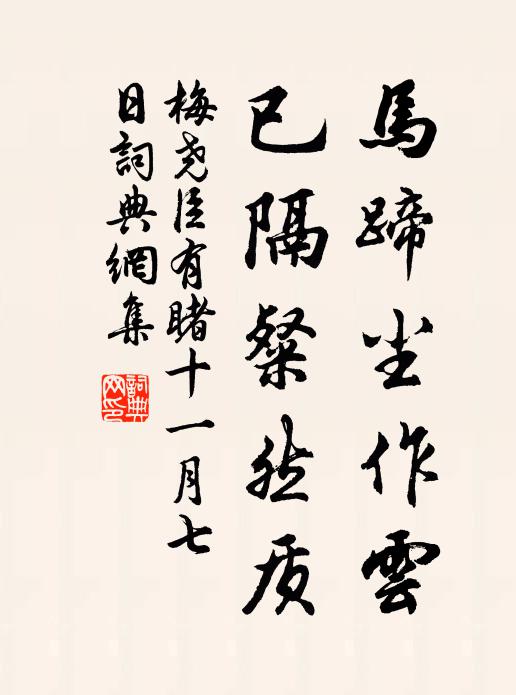 馬蹄尘作雲
已隔粲然质
梅尧臣有睹十一月七
日詞典網集
詞典
网印